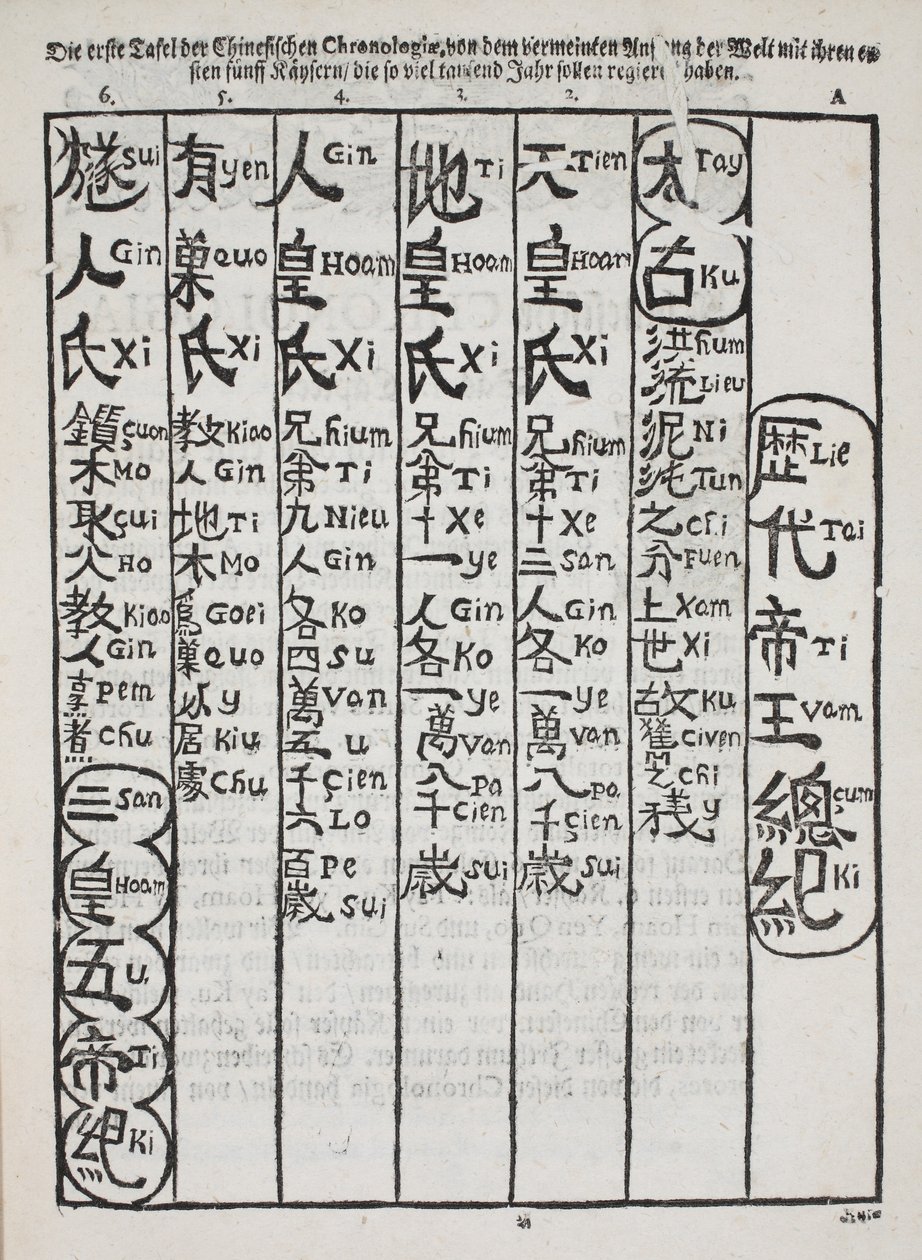 Die erste Tafel der Chinesischen Chronologiæ, von dem vermeinten der Welt mit ihren er-
sten fünff Käysern/ die so viel tausend Jahr sollen haben.
6. 5. 4. 3. 2. A
歴 Lie 代 Tai 帝 Ti 王 Vam 總 çum 紀 Ki
太 Tay 古 Ku 洪 hum 流 Lieu 泥 Ni 沌 Tun 之 chi 分 Fuen 上 Xam 世 Xi 故 Ku Civen chi y
天 Tien 皇 Hoam 氏 Xi 兄 hium 弟 Ti 十 Xe 三 San 人 Gin 各 Ko 一 ye 萬 van 八 pa 千 çien 歲 sui
地 Ti 皇 Hoam 氏 Xi 兄 hium 弟 Ti 十 Xe 一 ye 人 Gin 各 Ko 一 ye 萬 van 八 pa 千 cien 歲 sui
人 Gin 皇 Hoam 氏 Xi 兄 hium 弟 Ti 九 Nieu 人 Gin 各 Ko 四 su 萬 van 五 u 千 çien 六 Lo 百 pe 歲 sui
有 yen 巢 quo 氏 Xi 教 Kiao 人 Gin 地 Ti 木 Mo 爲 Goei 巢 quo 以 y 居 Kiu 處 Chu
燧 sui 人 Gin 氏 Xi 鑽 çuon 木 Mo 取 çui 火 Ho 教 Kiao 人 Gin 烹 pem 煮 chu 三 san 皇 Hoam 五 u. 帝 Ti 紀 Ki